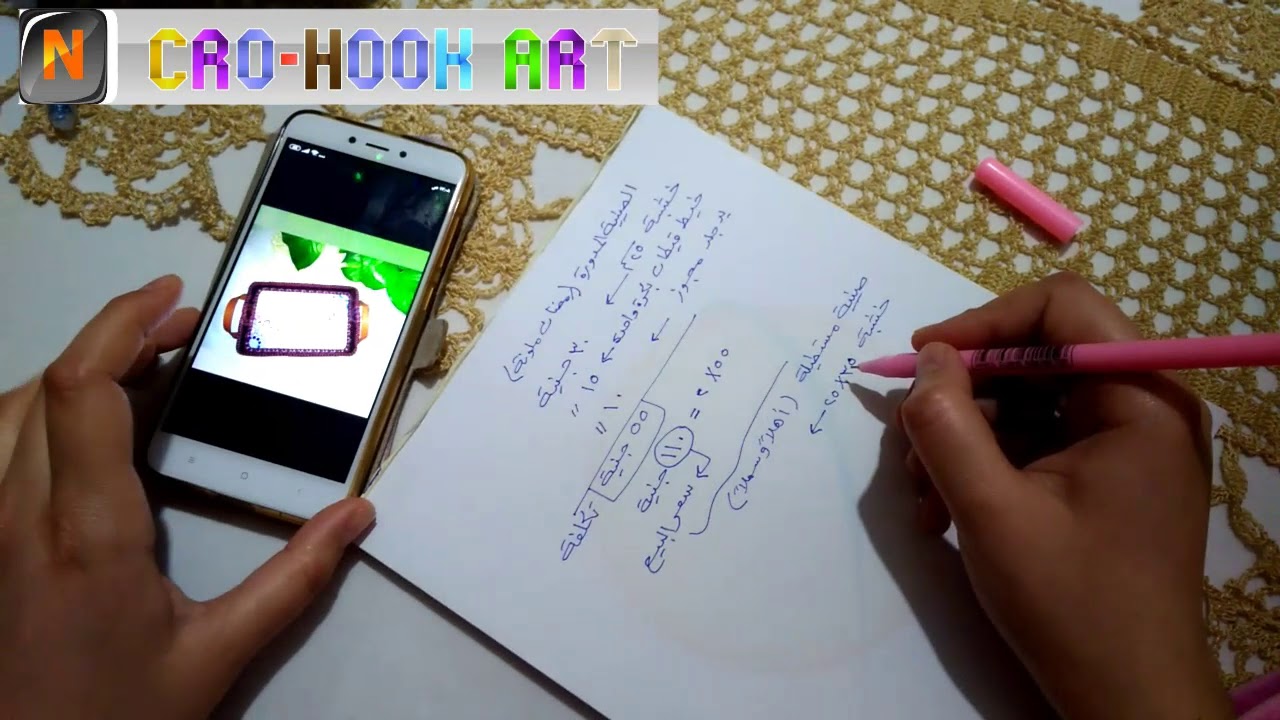 N CRO-HOOK ART
الصينية المدورة (رمضان
خشبة ٢٥سم ← ٣٠ جنية
خيط قيطان بكرة واحدة ← ١٥ 〃
← ١٠ 〃
٥٥ جنية تكلفة
٥٥ × ٢ = ١١٠ جنية
سعر البيع
صنية مستطيلة (أهلا وسهلا)
خشبة ٢٥×٣٥ ←